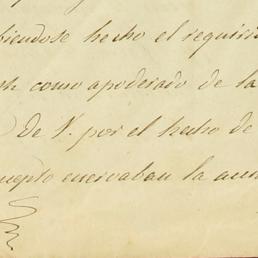 biendose hecho el requiri
como apoderado de la
De V. por el hecho de
cuepto enervaban la accio